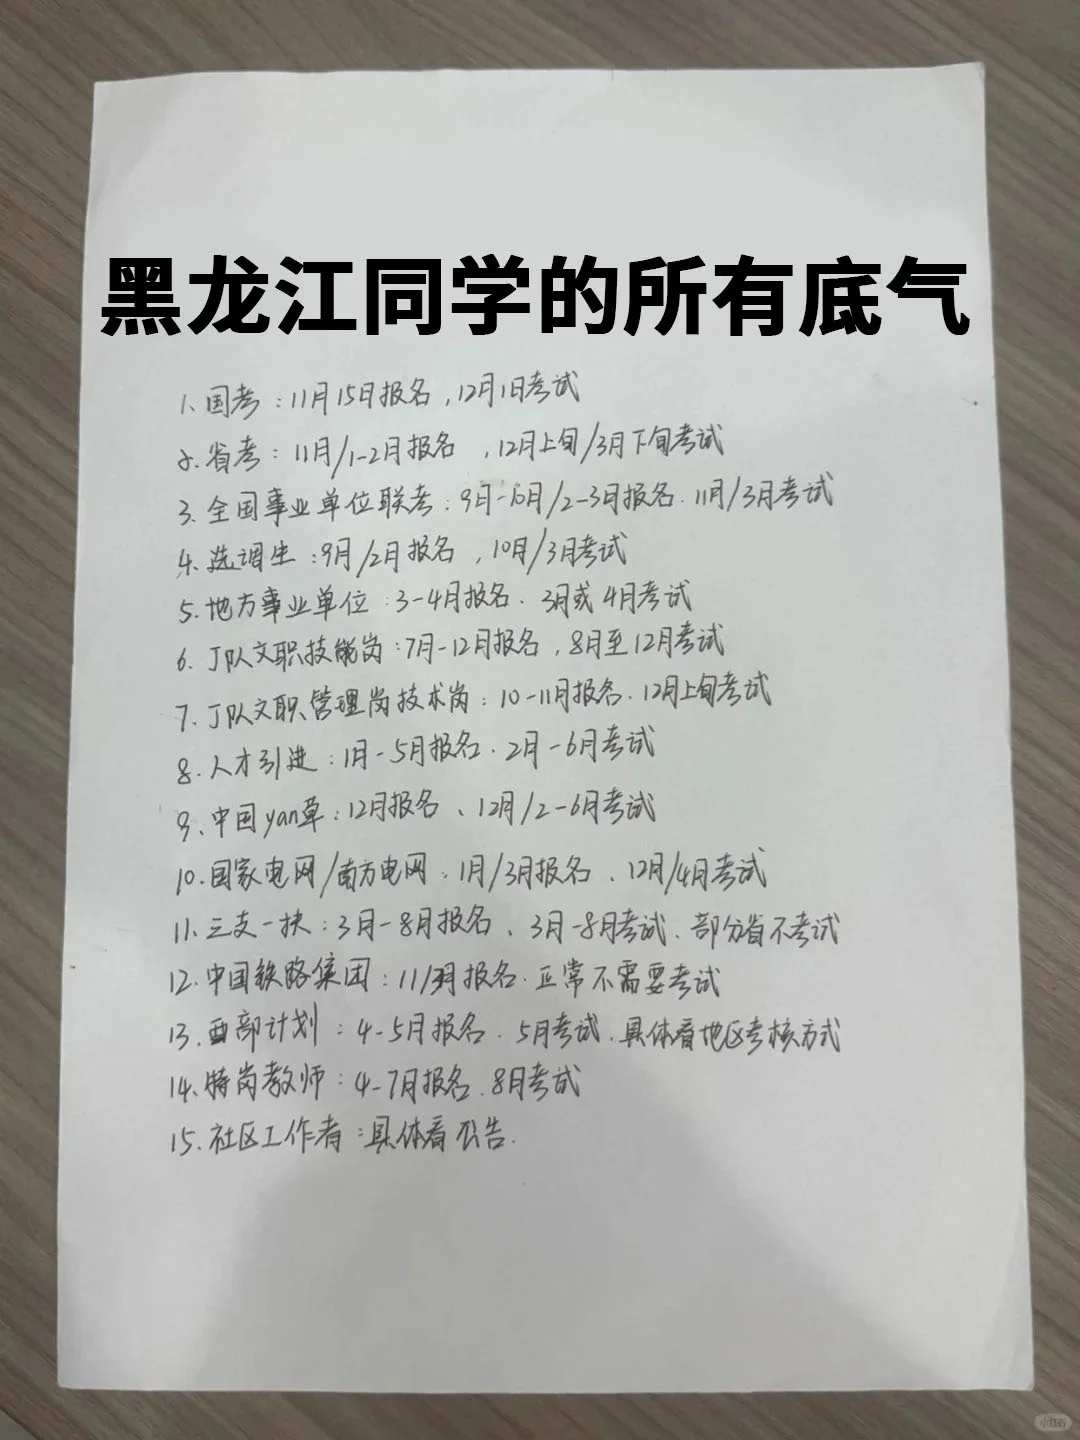 黑龙江同学的所有底气
1、国考：11月15日报名，12月1日考试
2、省考：11月/1-2月报名，12月上旬/3月下旬考试
3、全国事业单位联考：9月-10月/2-3月报名、11月/3月考试
4、选调生：9月/2月报名，10月/3月考试
5、地方事业单位：3-4月报名、3月或4月考试
6、J队文职技能岗：7月-12月报名，8月至12月考试
7、J队文职管理岗技术岗：10-11月报名、12月上旬考试
8、人才引进：1月-5月报名、2月-6月考试
9、中国yan草：12月报名、12月/2-6月考试
10、国家电网/南方电网：1月/3月报名、12月/4月考试
11、三支一扶：3月-8月报名、3月-8月考试、部分省不考试
12、中国铁路集团：11/3月报名、正常不需要考试
13、西部计划：4-5月报名、5月考试、具体看地区考核方式
14、特岗教师：4-7月报名、8月考试
15、社区工作者：具体看公告、
小红书